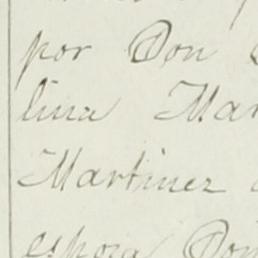 por Don
lina Mar
Martinez
espoza Don